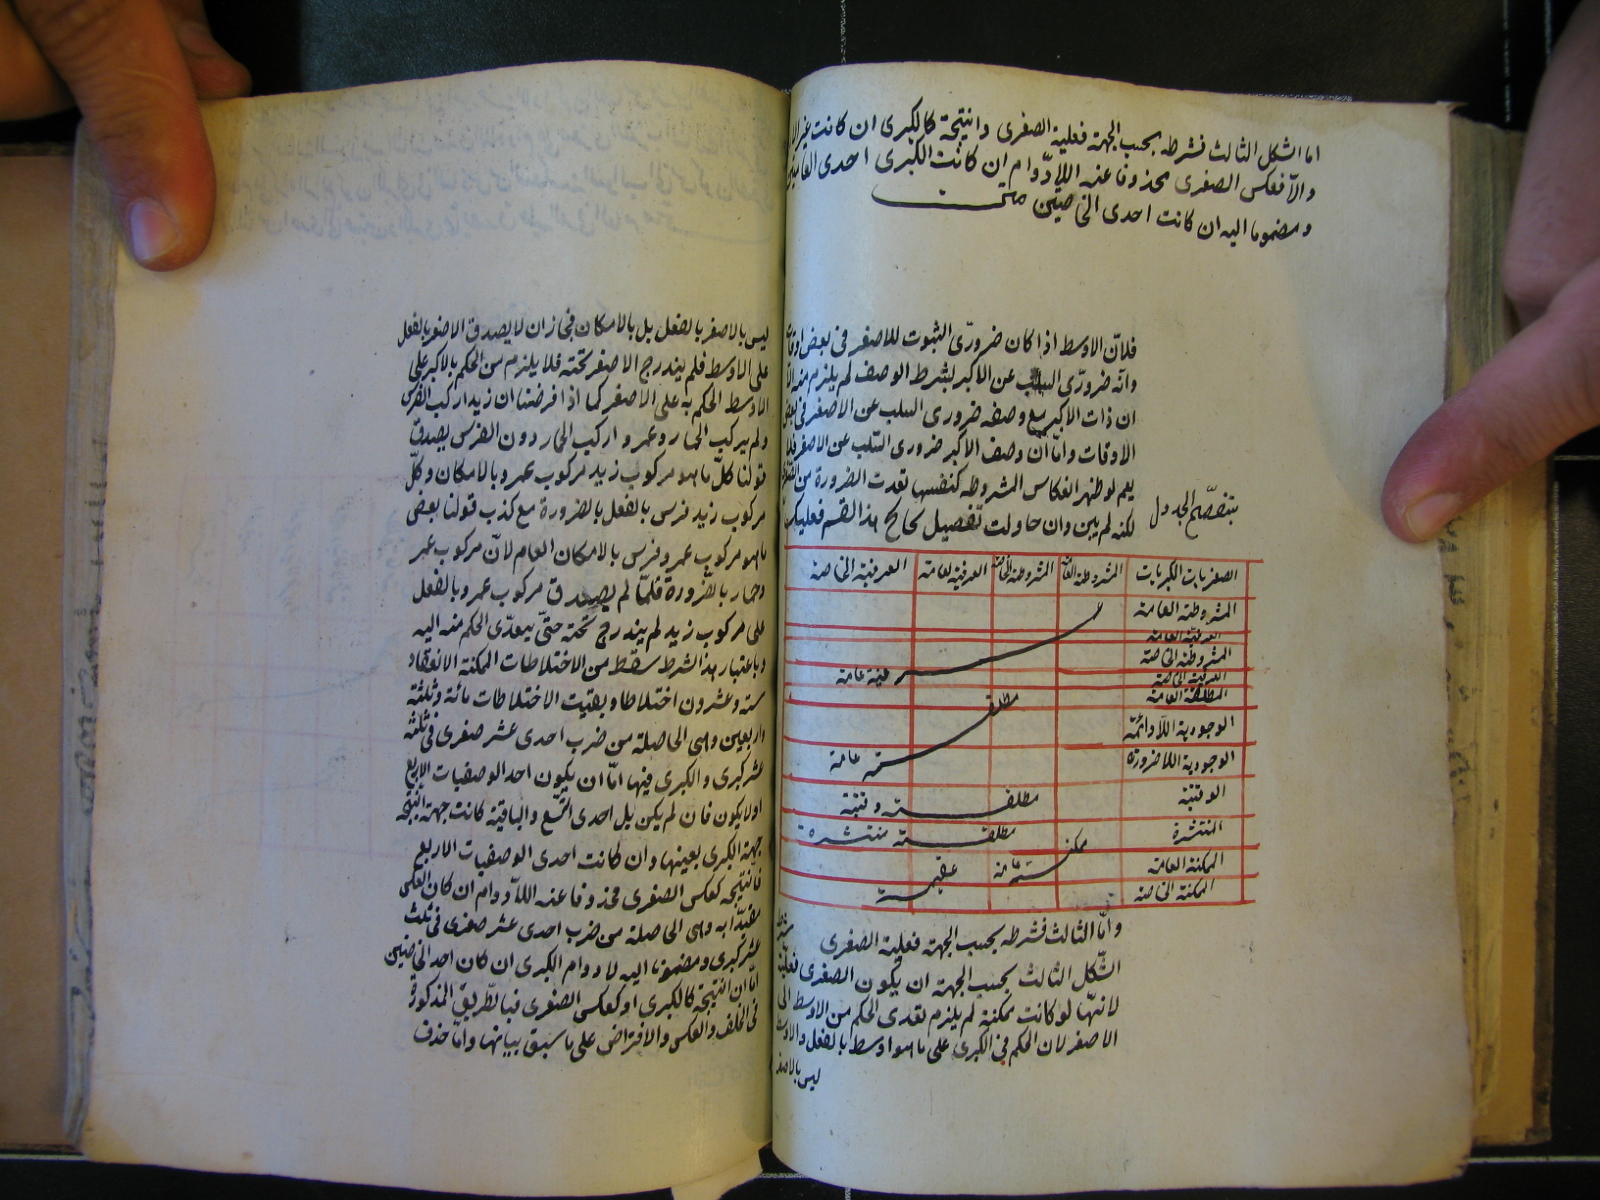 اما الشكل الثالث فشرطه بحسب الجهة فعلية الصغرى والنتيجة كالكبرى ان كانت غير
والا فعكس الصغرى محذوفا عنه اللادوام ان كانت الكبرى احدى
ومضموما اليه ان كانت احدى الخاصتين متن
فلان الاوسط اذا كان ضرورى الثبوت للاصغر فى بعض
وانه ضرورى السلب عن الاكبر بشرط الوصف لم يلزم منه
ان ذات الاكبر مع وصفه ضرورى السلب عن الاصغر فى بعض
الاوقات واما ان وصف الاكبر ضرورى السلب عن الاصغر فلا
يعم لو ظهر انعكاس المشروطة كنفسها تعدت الضرورة من
لكنه لم يبن وان حاولت تفصيل نتائج هذا القسم فعليك
بتصفح الجدول
الصغريات الكبريات المشروطة العامة المشروطة الخاصة العرفية العامة العرفية الخاصة
المشروطة العامة
العرفية العامة
المشروطة الخاصة
العرفية الخاصة
عرفية عامة
المطلقة العامة
الوجودية اللادائمة
الوجودية اللاضرورة
مطلقة عامة
الوقتية مطلقة وقتية
المنتشرة مطلقة منتشرة
الممكنة العامة ممكنة عامة عقيمة
الممكنة الخاصة
واما الثالث فشرطه بحسب الجهة فعلية الصغرى
الشكل الثالث بحسب الجهة ان يكون الصغرى فعلية
لانها لو كانت ممكنة لم يلزم تعدى الحكم من الاوسط الى
الاصغر لان الحكم فى الكبرى على ما هو اوسط بالفعل والاوسط
ليس بالاصغر
ليس بالاصغر بالفعل بل بالامكان فجاز ان لا يصدق الاصغر بالفعل
على الاوسط فلم يندرج الاصغر تحته فلا يلزم من الحكم بالاكبر على
الاوسط الحكم به على الاصغر كما اذا فرضنا ان زيدا ركب الفرس
ولم يركب الحمار وعمروا ركب الحمار دون الفرس يصدق
قولنا كل ما هو مركوب زيد مركوب عمرو بالامكان وكل
مركوب زيد فرس بالفعل بالضرورة مع كذب قولنا بعض
ما هو مركوب عمرو فرس بالامكان العام لان مركوب عمر
وحمار بالضرورة فلما لم يصدق مركوب عمرو بالفعل
على مركوب زيد لم يندرج تحته حتى يتعدى الحكم منه اليه
وباعتبار هذا الشرط سقط من الاختلاطات الممكنة الانعقاد
ستة وعشرون اختلاطا وبقيت الاختلاطات مائة وثلثة
واربعين وهى الحاصلة من ضرب احدى عشر صغرى فى ثلثة
عشر كبرى والكبرى فيها اما ان يكون احد الوصفيات الاربع
اولا يكون فان لم يكن بل احدى التسع والباقية كانت جهة النتيجة
جهة الكبرى بعينها وان كانت احدى الوصفيات الاربع
فالنتيجة كعكس الصغرى محذوفا عنه اللادوام ان كان العكس
مقيدا به وهى الحاصلة من ضرب احدى عشر صغرى فى ثلث
عشر كبرى ومضموما اليه لادوام الكبرى ان كان احد الخاصتين
اما ان النتيجة كالكبرى او كعكس الصغرى فبالطريق المذكورة
فى الخلف والعكس والافتراض على ما سبق بيانها واما حذف